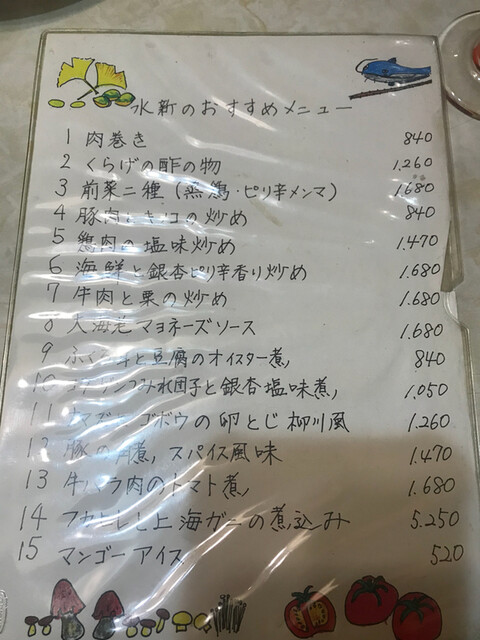 水新のおすすめメニュー
1 肉巻き 840
2 くらげの酢の物 1,260
3 前菜二種(蒸鶏・ピリ辛メンマ) 1,680
4 豚肉とキノコの炒め 840
5 鶏肉の塩味炒め 1,470
6 海鮮と銀杏ピリ辛香り炒め 1,680
7 牛肉と栗の炒め 1,680
8 大海老マヨネーズソース 1,680
9 と豆腐のオイスター煮 840
10 つみれ団子と銀杏塩味煮 1,050
11 ゴボウの卵とじ柳川風 1,260
12 豚の角煮、スパイス風味 1,470
13 牛バラ肉のトマト煮 1,680
14 フカヒレと上海ガニの煮込み 5,250
15 マンゴーアイス 520